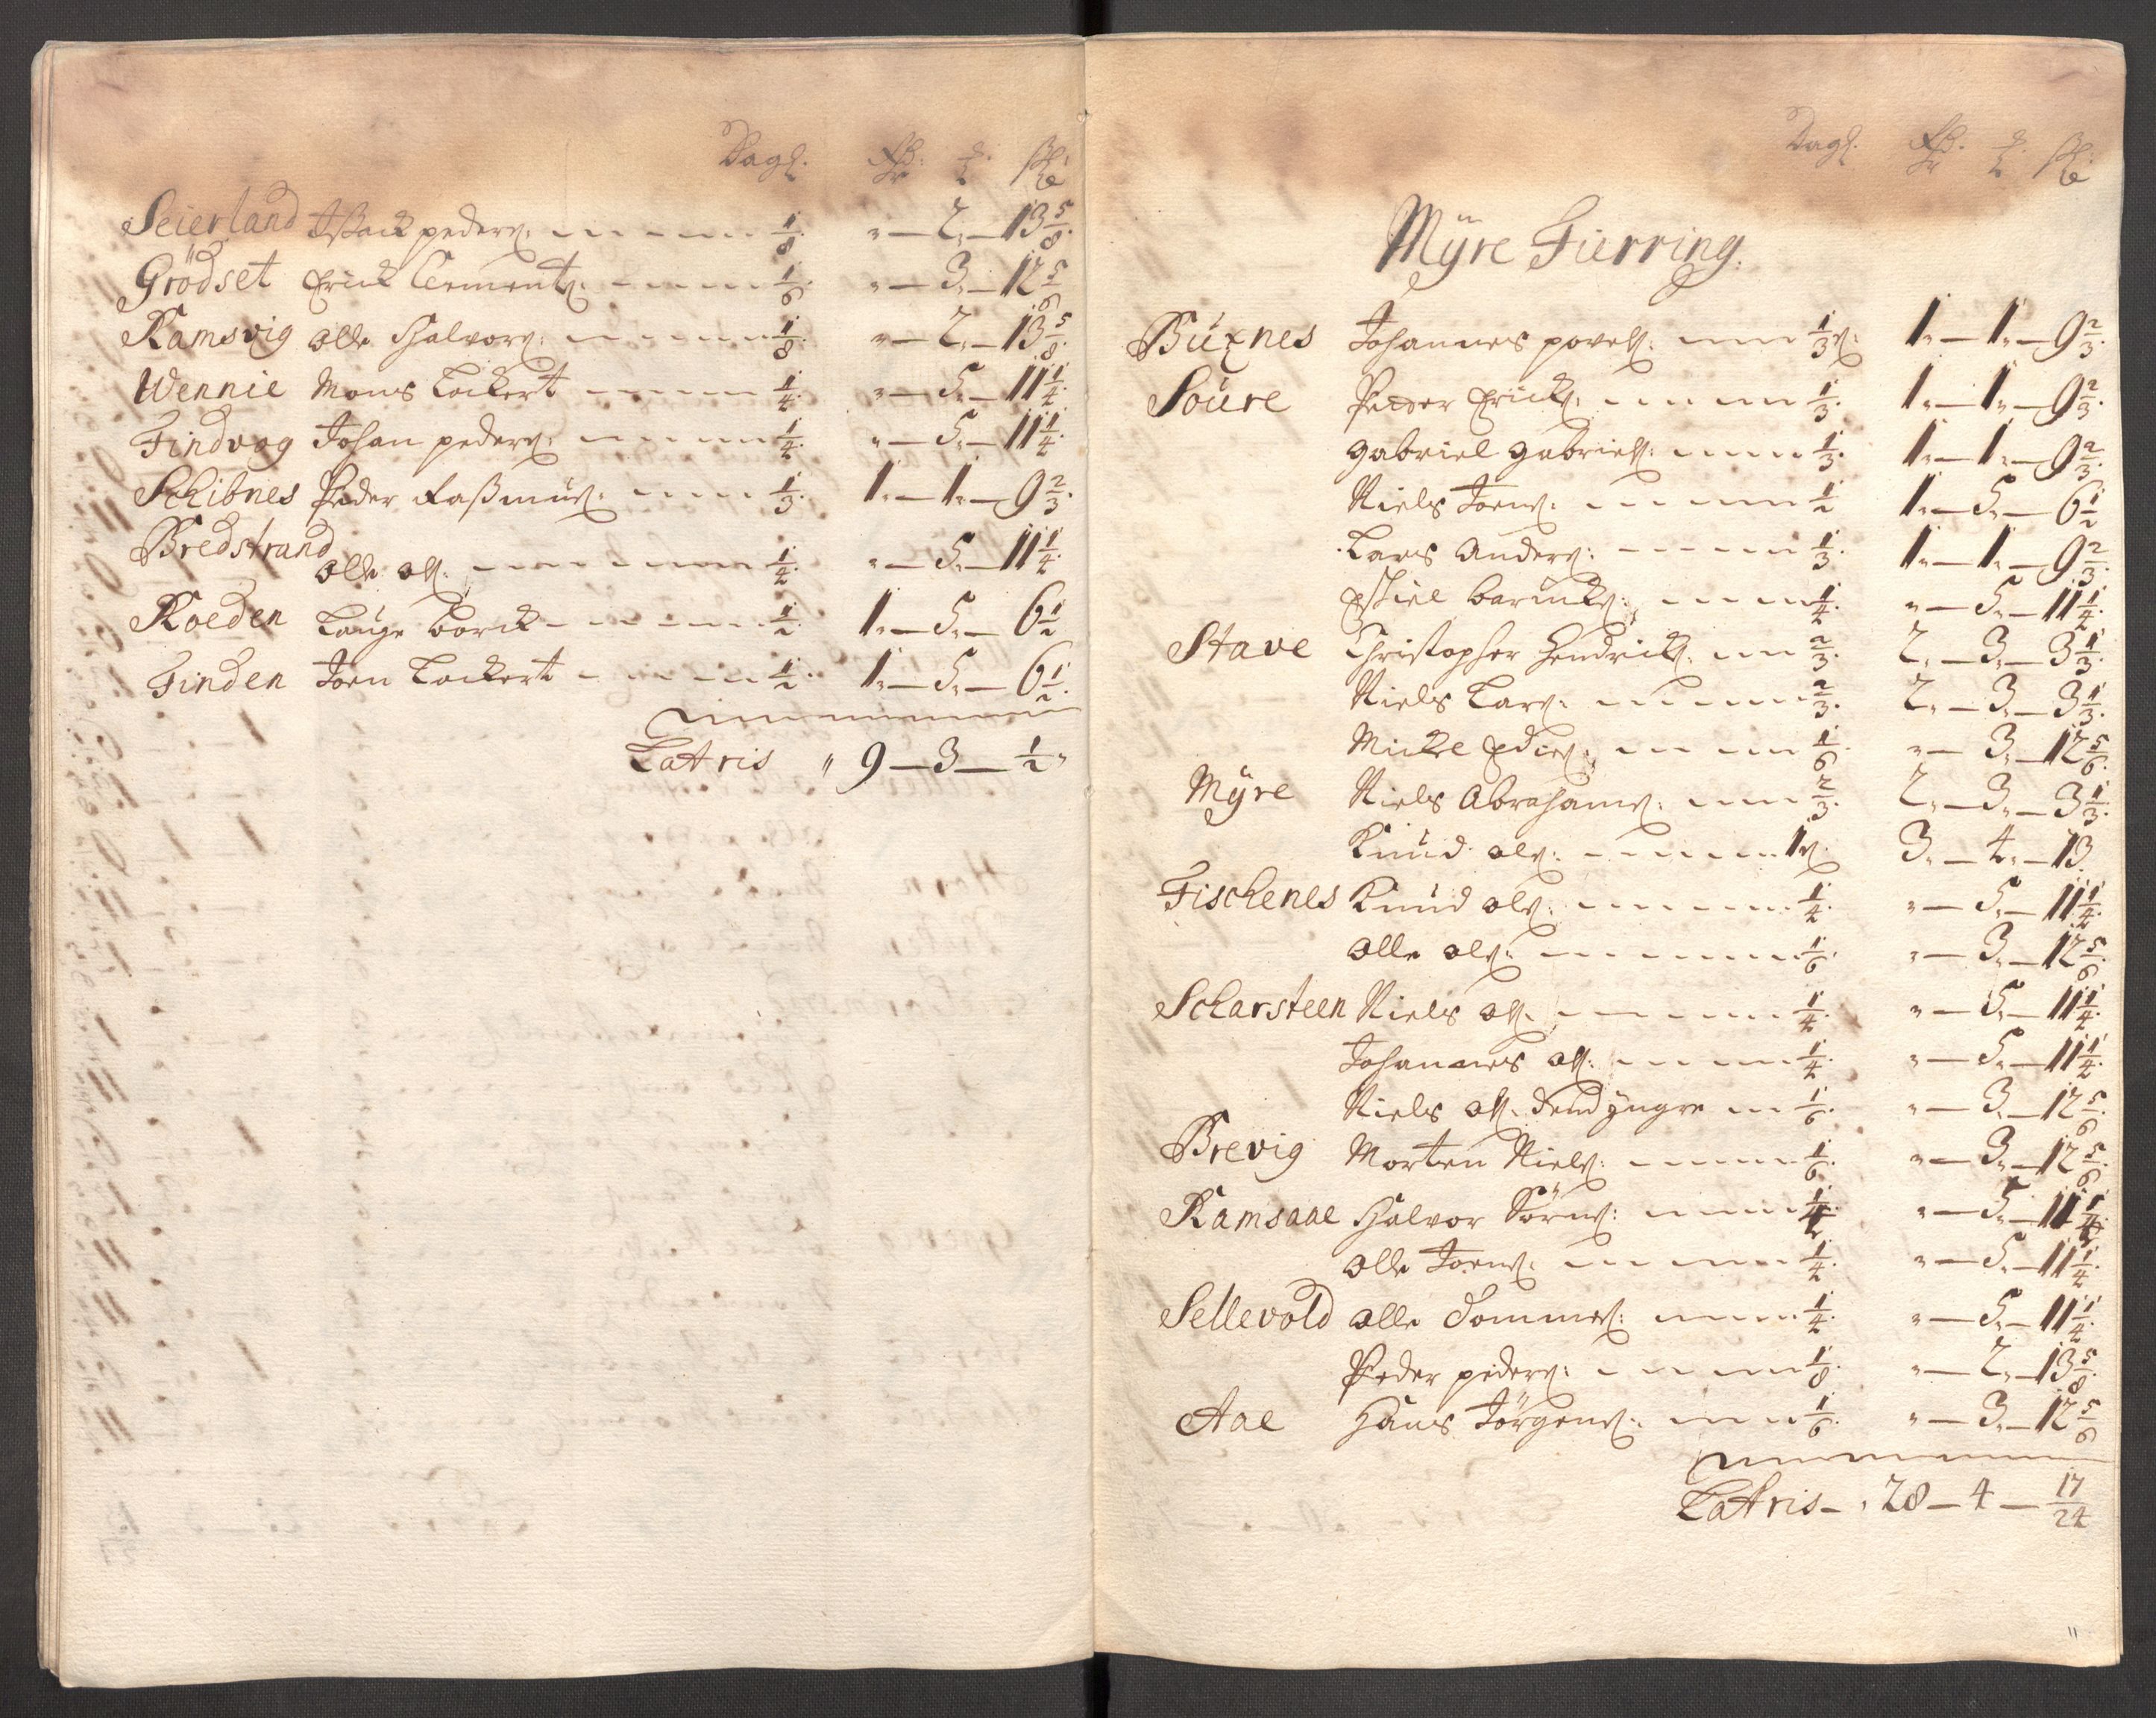 Dagl. Rdr. ℔. ſkl.
Seierland Isßack peders. 1/8. " — 2. — 13 5/8.
Grödset Erick Clements. 1/6. " — 3. — 12 5/6
Ramsvig olle Halvors. 1/8. " — 2. — 13 5/8.
Wennie Mons Lockert 1/4. " — 5. — 11 1/4.
Findvog Johan peders. 1/4. " — 5. — 11 1/4.
Schibnes Peder Raßmus. 1/3. 1. — 1. — 9 2/3.
Bredstrand
olle ols. 1/4. " — 5. — 11 1/4
Roeden Lauge borck 1/2. 1. — 5. — 6 1/2
Finden Joen Lockert 1/2. 1. — 5. — 6 1/2.
Latris " 9 — 3 — 1/2 "
Dagl. Rdr. ℔. ſkl.
Myre Fierring.
Buxnes Johannes povels. 1/3 1. — 1. — 9 2/3.
Soure Peder Ericks. 1/3. 1. — 1. — 9 2/3.
gabriel gabriels. 1/3. 1. — 1. — 9 2/3.
Niels Joens. 1/2 1. — 5. — 6 1/2
Lars Anders. 1/3. 1. — 1. — 9 2/3.
Eskiel 1/4. " — 5. — 11 1/4.
Stave Christopher Hendricks. 2/3. 2. — 3. — 3 1/3.
Niels Lars. 2/3. 2. — 3. — 3 1/3.
Mickel 1/6. " — 3. — 12 5/6.
Myre Niels Abrahams. 2/3. 2. — 3. — 3 1/3.
Knud ols. 1 3. — 4. — 13.
Fischenes Knud ols. 1/4. " — 5. — 11 1/4.
olle ols. 1/6. " — 3. — 12 5/6.
Scharsteen Niels ols. 1/4. " — 5. — 11 1/4.
Johannes ols. 1/4. " — 5. — 11 1/4.
Niels ols. dend yngre 1/6. " — 3. — 12 5/6.
Brevig Morten Niels. 1/6. " — 3. — 12 5/6.
Ramsaae Halvor Sörens. 1/4. " — 5. — 11 1/4.
olle Joens. 1/4. " — 5. — 11 1/4.
Sellevold olle Tommes. 1/4. " — 5. — 11 1/4.
Peder peders. 1/8. " — 2. — 13 5/8.
Aae Hans Jörgens. 1/6. " — 3. — 12 5/6
Latris — 28 — 4 — 17/24